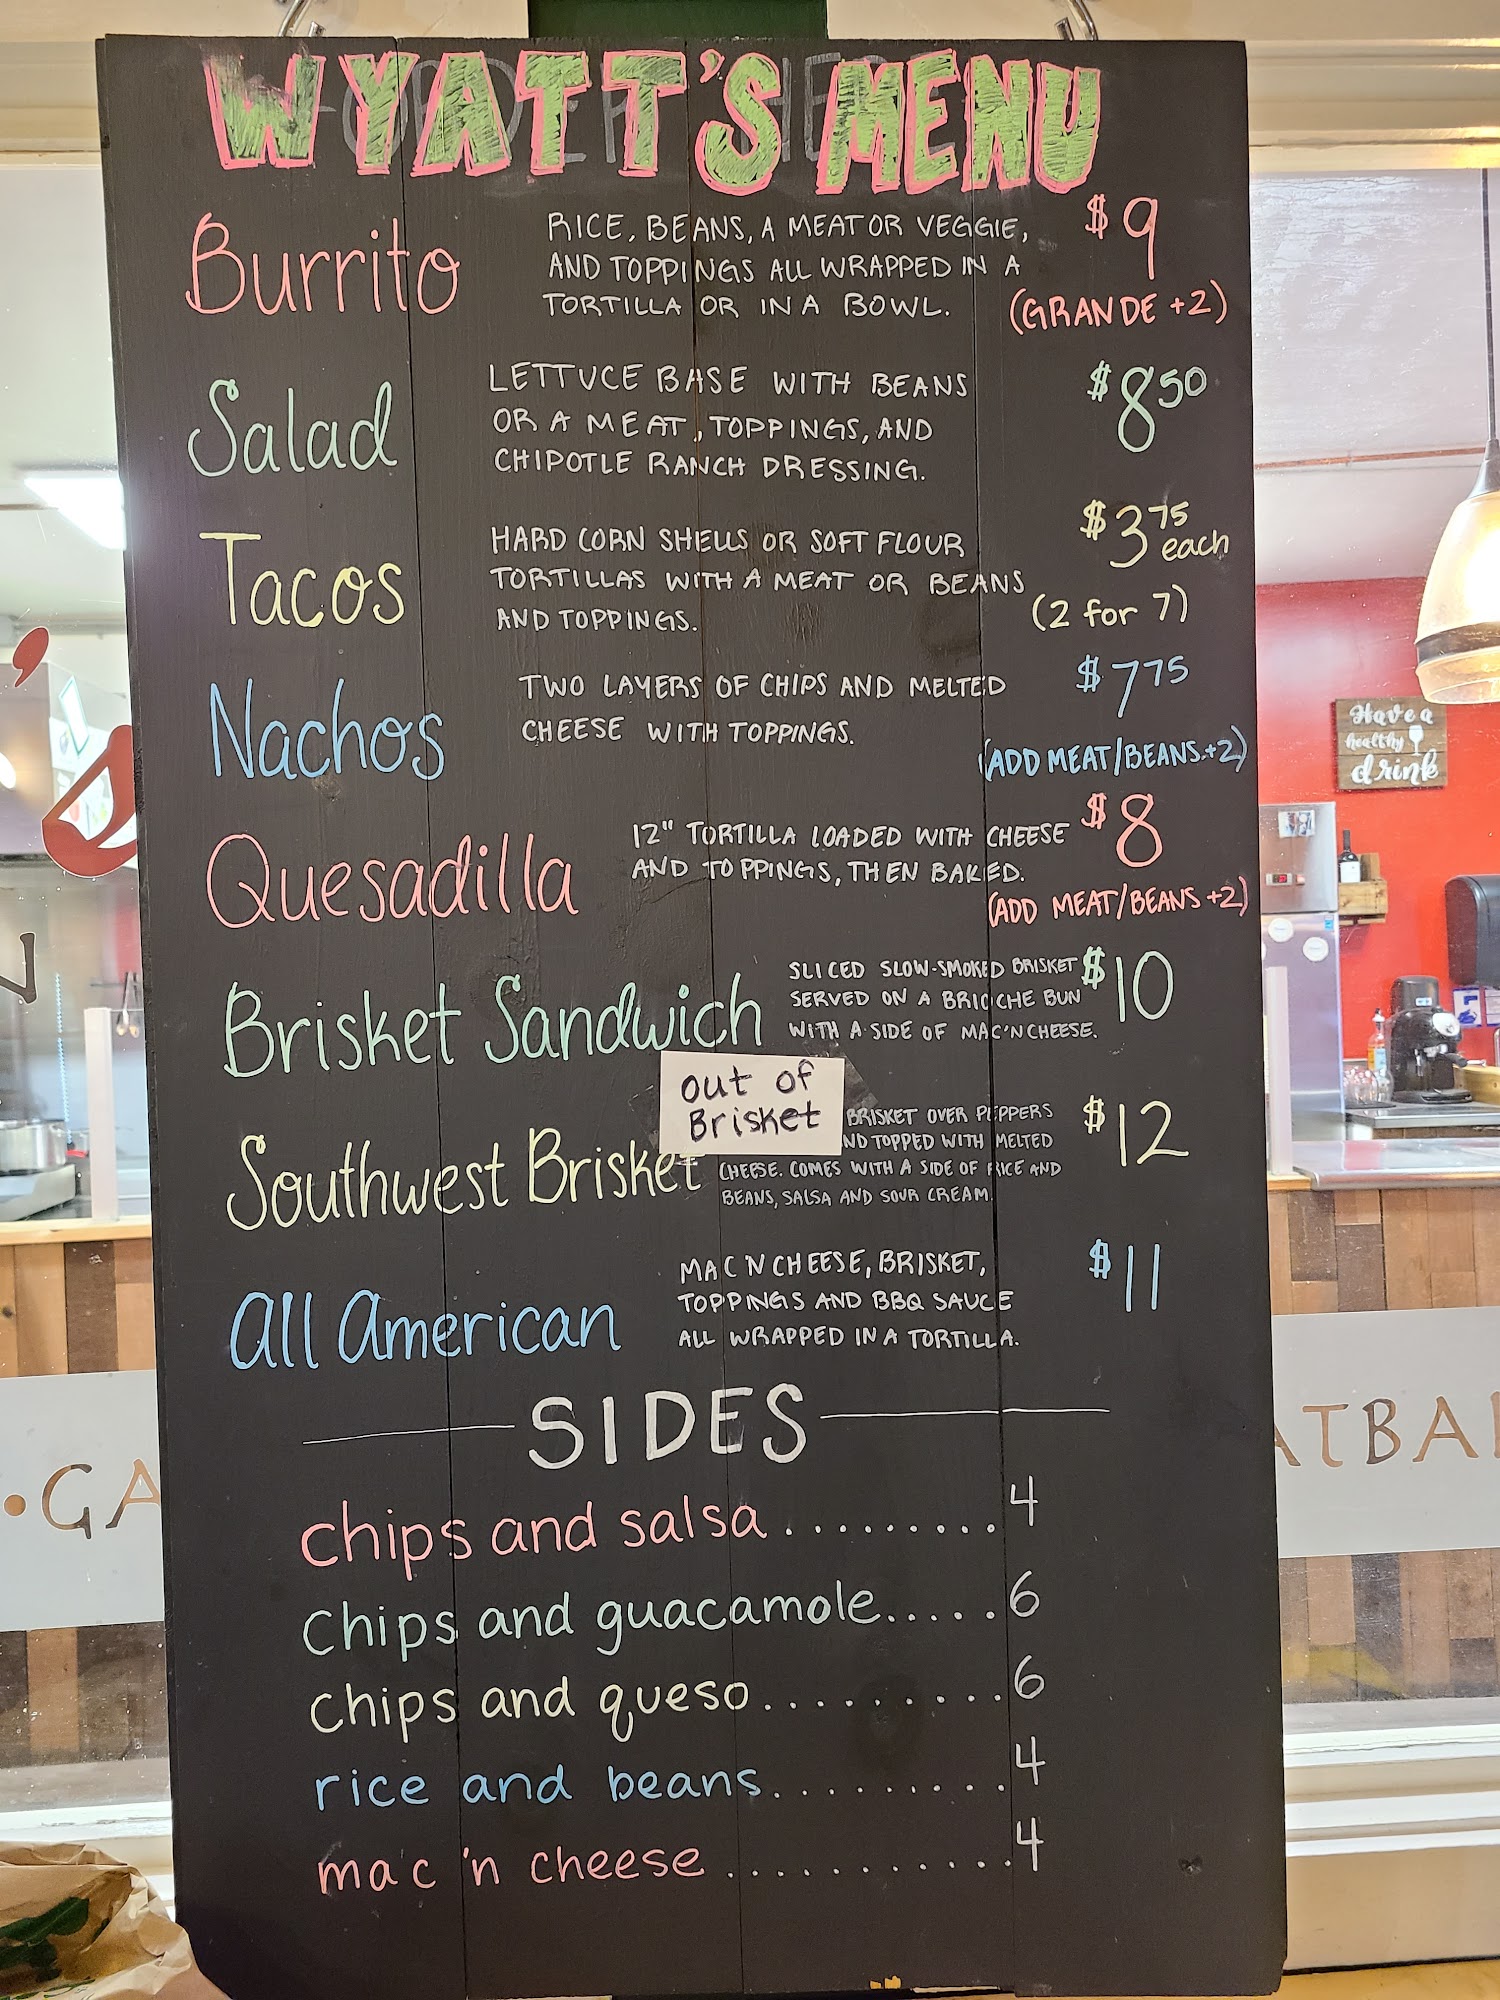 WYATT'S MENU
Burrito
RICE, BEANS, A MEAT OR VEGGIE,
AND TOPPINGS ALL WRAPPED IN A
TORTILLA OR IN A BOWL.
$9
(GRANDE +2)
Salad
LETTUCE BASE WITH BEANS
OR A MEAT, TOPPINGS, AND
CHIPOTLE RANCH DRESSING.
$8 50
Tacos
HARD CORN SHELLS OR SOFT FLOUR
TORTILLAS WITH A MEAT OR BEANS
AND TOPPINGS.
$3 75 each
(2 for 7)
Nachos
TWO LAYERS OF CHIPS AND MELTED
CHEESE WITH TOPPINGS.
$7 75
(ADD MEAT/BEANS.+2)
Quesadilla
12" TORTILLA LOADED WITH CHEESE
AND TOPPINGS, THEN BAKED.
$8
(ADD MEAT/BEANS +2)
Brisket Sandwich
SLICED SLOW-SMOKED BRISKET
SERVED ON A BRIOCHE BUN
WITH A SIDE OF MAC'N CHEESE.
$10
out of
Brisket
Southwest Brisket
BRISKET OVER PEPPERS
ND TOPPED WITH MELTED
CHEESE. COMES WITH A SIDE OF RICE AND
BEANS, SALSA AND SOUR CREAM.
$12
All American
MAC N CHEESE, BRISKET,
TOPPINGS AND BBQ SAUCE
ALL WRAPPED IN A TORTILLA.
$11
SIDES
chips and salsa.........4
chips and guacamole.....6
chips and queso.........6
rice and beans.........4
mac 'n cheese...........4
Have a
healthy
drink
GA
ATBA